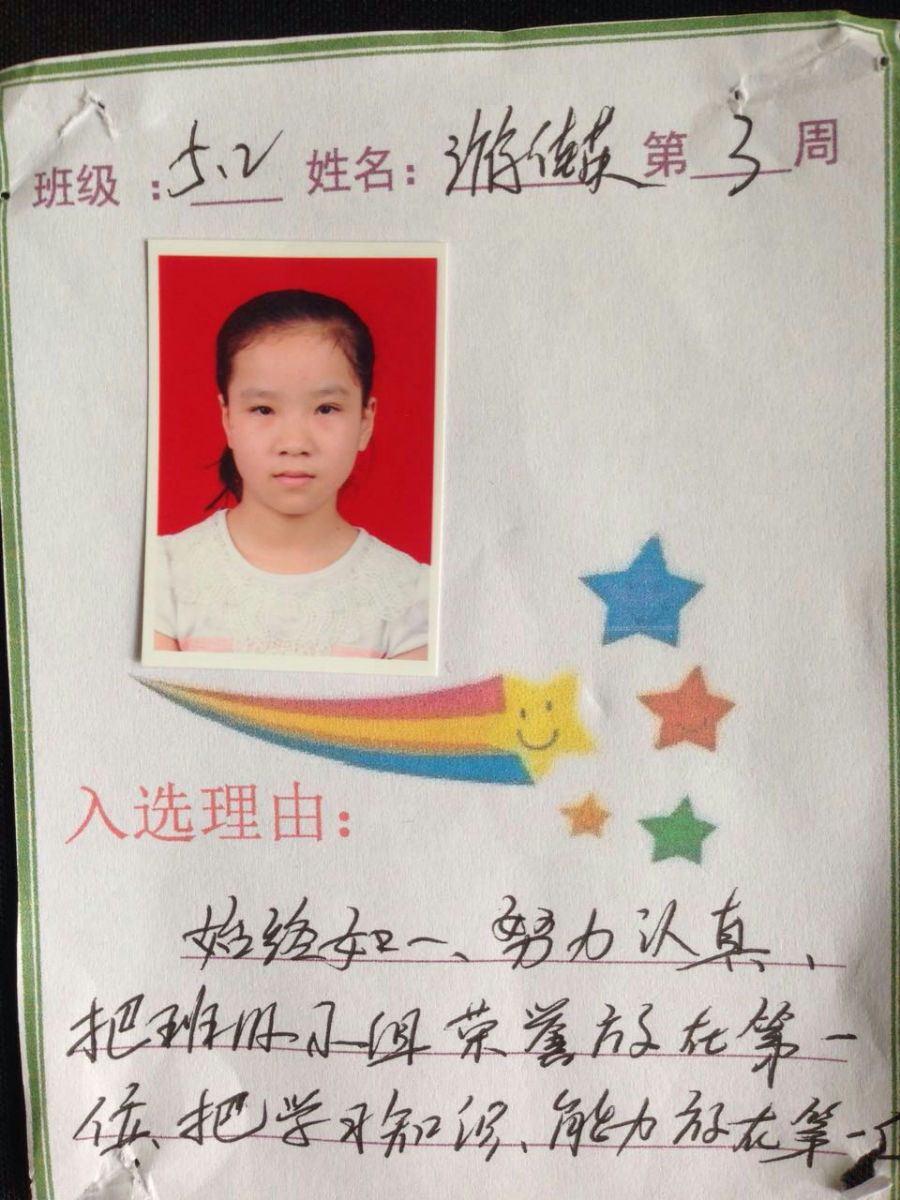 班级：5.2 姓名：游佳英 第 3 周
入选理由：
始终如一、努力认真、
把班级小组荣誉放在第一
位、把学习知识、能力放在第一